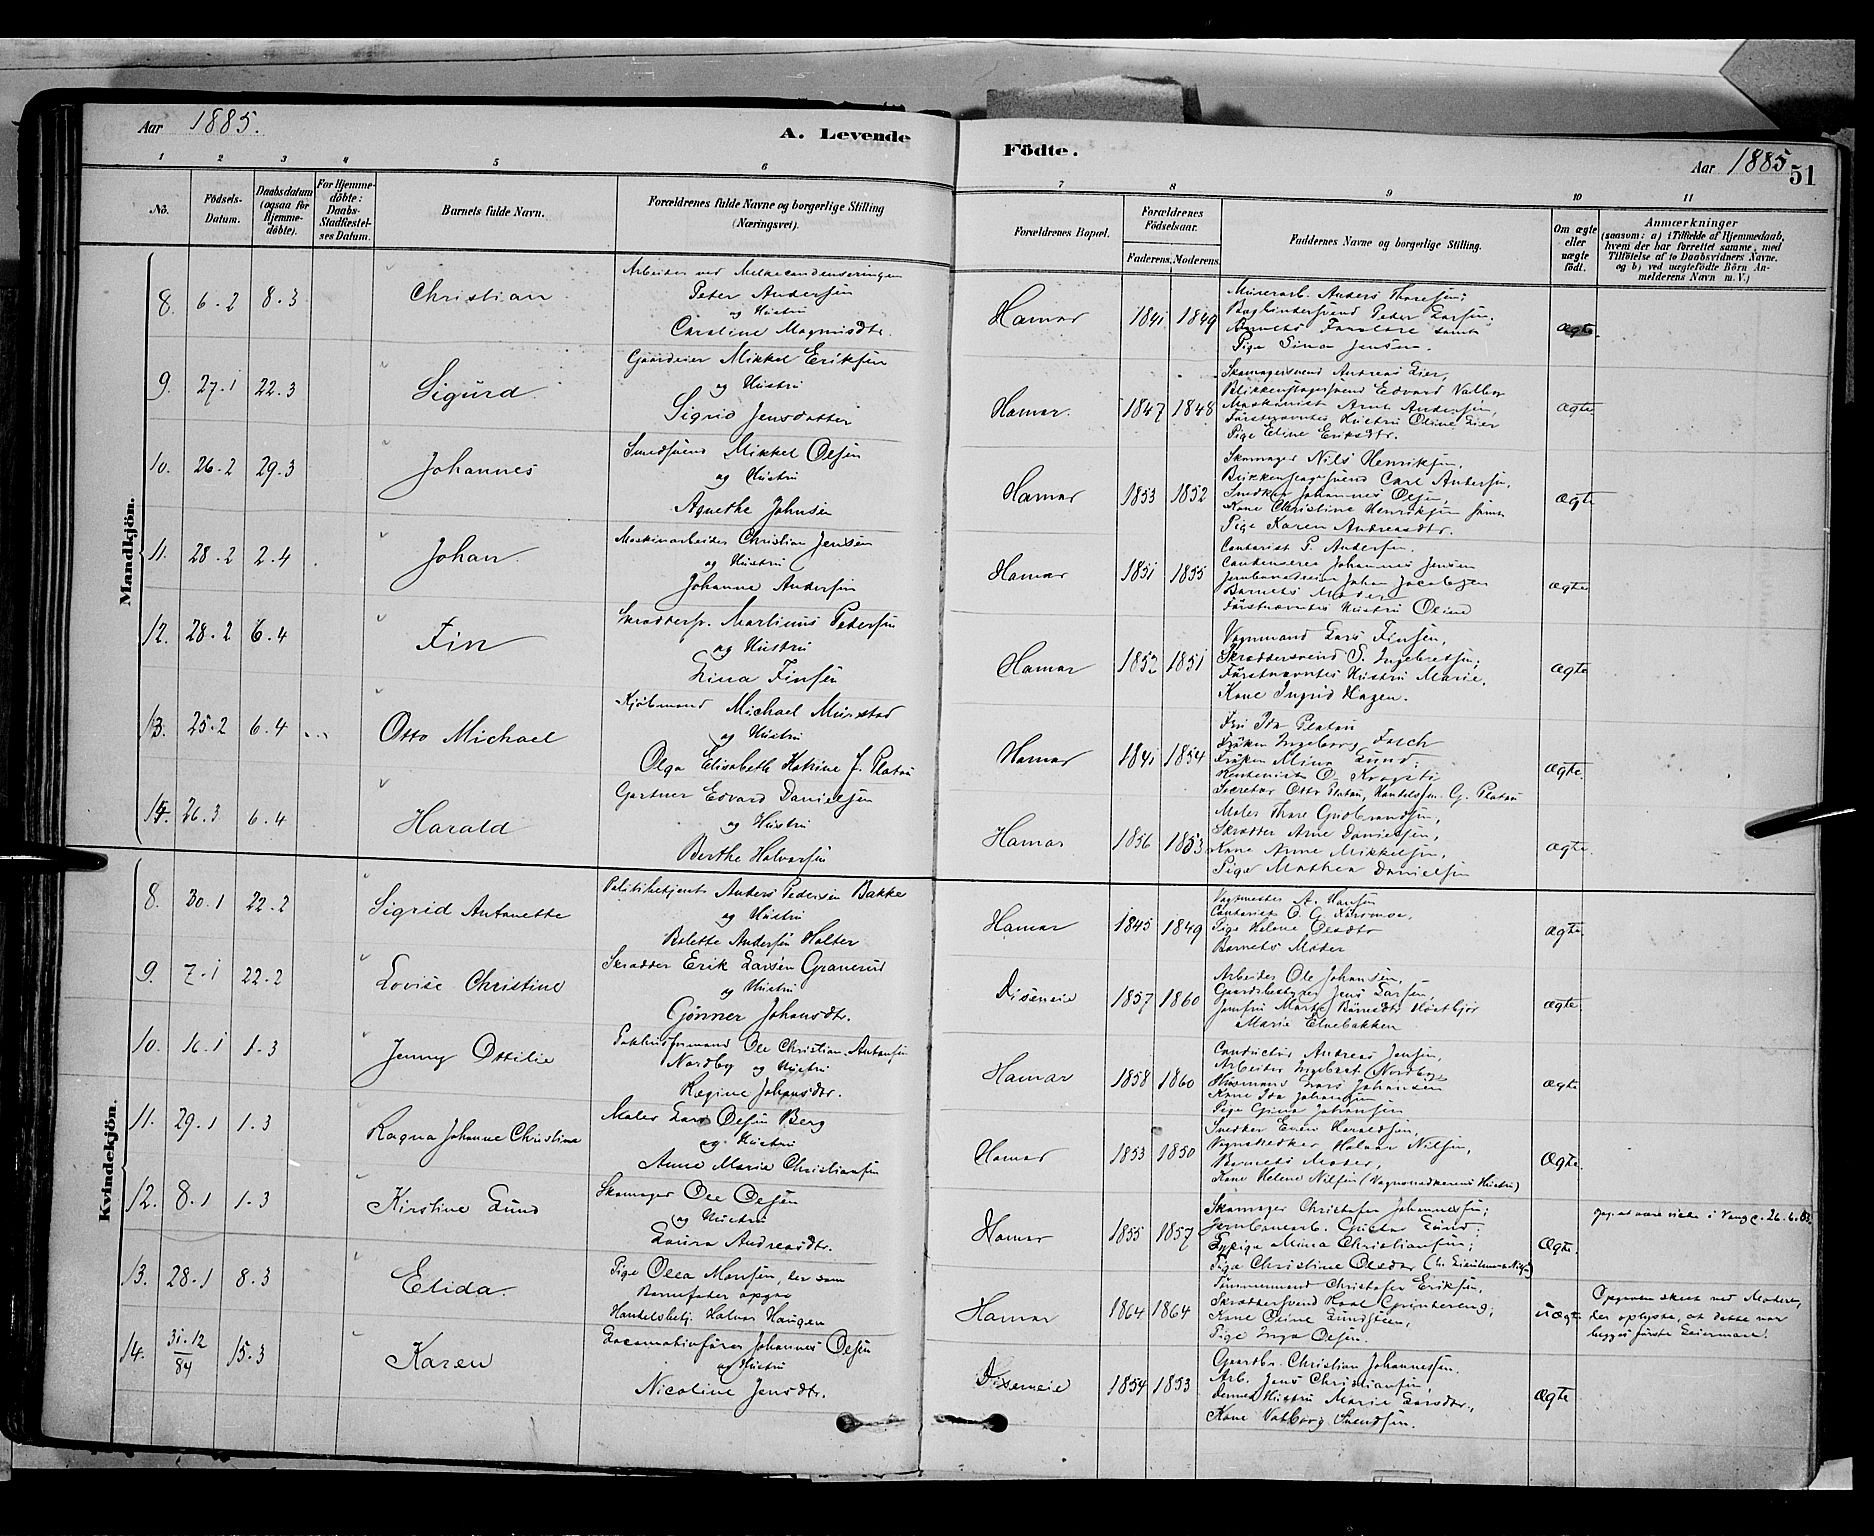 Aar 1885.
A. Levende
Födte.
Aar 1885
51
1 2 3 4 5 6
7 8 9 10 11
No.
Födsels-
Datum.
Daabsdatum
(ogsaa for
Hjemme-
döbte).
For Hjemme-
döbte:
Daabs-
Stadfæstel-
ses Datum.
Barnets fulde Navn.
Forældrenes fulde Navne og borgerlige Stilling
(Næringsvei).
Forældrenes Bopæl.
Forældrenes
Födselsaar.
Faderens. Moderens.
Faddernes Navne og borgerlige Stilling.
Om ægte
eller
uægte
födt.
Anmærkninger
(saasom: a) i Tilfælde af Hjemmedaab,
hvem der har forrettet samme, med
Tilföielse af to Daabsvidners Navne.
og b) ved uægtefödte Börn An-
melderens Navn m. V.)
Mandkjön.
8. 6.2 8.3
Christian
Arbeider ved Melkecondenseringen
Peter Andersen
og Hustru
Caroline Magnusdtr.
Hamar
1841 1849
Murerarb. Anders Thoresen;
Peter Larsen;
Barnets Forældre samt
Pige Sina Jensen.
ægte.
9. 27.1 22.3
Sigurd
Gaardeier Mikkel Eriksen
og Hustru
Sigrid Jensdatter
Hamar.
1847 1848
Skomagersvend Andreas Lier,
Blikkenslagersvend Edvard Valberg
Maskinist Arnt Andersen,
Förstnævntes Hustru Oline Lier
Pige Eline Eriksdtr.
ægte
10. 26.2 29.3
Johannes
Smedsvend Mikkel Olsen
og Hustru
Agnethe Johnsen
Hamar
1853 1852
Skomager Nils Henriksen,
Blikkenslagersvend Carl Andersen,
Snedker Johannes Olsen,
Kone Christine Henriksen samt
Pige Karen Andreasdtr.
ægte
11. 28.2 2.4
Johan
Maskinarbeider Christian Jensen
og Hustru
Johanne Andersen
Hamar
1851 1855
Contorist P. Andersen.
Johannes Jensen
Johan Jacobsen
Barnets Moder
Förstnævntes Hustru Oline
ægte
12. 28.2 6.4
Fin
Skræddersv. Martinus Pedersen
og Hustru
Lina Finsen
Hamar
1852 1851
Vognmand Lars Finsen,
Skræddersvend S. Ingebretsen;
Förstnævntes Hustru Marie,
Kone Ingrid Hagen.
ægte
13. 25.2 6.4
Otto Michael
Kjöbmand Michael Mürstad
og Hustru
Olga Elisabeth Katrine f. Platou
Hamar
1841 1854
Fru Ida Platou
Fröken Ingeborg Falch
Fröken Mina Lund;
O. Krogsti
Secretær Otto Platou, Handelsfm. G. Platou
ægte.
14. 26.3 6.4
Harald
Gartner Edvard Danielsen
og Hustru
Berthe Halvorsen
Hamar
1856 1853
Maler Thore Gudbrandsen,
Skrædder Arne Danielsen,
Kone Anne Mikkelsen,
Pige Mathea Danielsen
ægte.
Kvindekjön.
8. 30.1 22.2
Sigrid Antonette
Politibetjent Anders Pedersen Bakke
og Hustru
Bolette Andersen Holter
Hamar
1845 1849
Vagtmester A. Hansen
Contorist O. G.
Pige Helene Olsdtr
Barnets Moder
ægte
9. 7.1 22.2
Lovise Christine
Skrædder Erik Larsen Granerud
og Hustru
Gönner Johansdtr.
Diseneie
1857 1860
Arbeider Ole Johansen,
Gaardsbestyrer Jens Larsen,
Jomfru Marthe
Marie Elvebakken
ægte
10. 16.1 1.3
Jenny Ottilie
Pakhusformand Ole Christian Antonsen
Nordby og Hustru
Regine Johansdtr.
Hamar
1858 1860
Conductör Andreas Jensen,
Arbeider Ingebret Nordby,
Husmand Lars Johansen
Kone Ida Johansen
Pige Gina Johansen
ægte
11. 29.1 1.3
Ragna Johanne Christine
Maler Lars Olsen Berg
og Hustru
Anne Marie Christiansen
Hamar
1853 1850
Snedker Even Haraldsen,
Vognsnedker Halvor Nilsen,
Barnets Moder,
Kone Helene Nilsen (Vognsnedkerens Hustru)
Ægte.
12. 8.1 1.3
Kirstine Lund
Skomager Ole Olsen
og Hustru
Laura Andreasdtr.
Hamar
1855 1857
Skomager Christofer Johannessen;
Jernbanearb. Gustav Lund;
Sypige Mina Christiansen;
Pige Christine Olsdtr
Ægte.
viede i Vang 26.6.
13. 28.1 8.3
Elida.
Pige Olea Monsen, der som
Barnefader opgav
Handelsbetj. Halvor Haugen
Hamar
1864 1864
Tömmermand Christofer Eriksen,
Skræddersvend
Kone Oline Lundsteen,
Pige Inga Olsen.
uægte
Opgaven skeet ved Moderen,
der oplyste, at dette var
begges förste Leiermaal.
14. 31.12/84 15.3
Karen
Locomotivförer Johannes Olsen
og Hustru
Nicoline Jensdtr.
Diseneie
1854 1853
Gaardbr. Christian Johannessen.
Arb. Jens Christiansen,
dennes Hustru Marie Larsdtr.,
Kone Valborg Svendsen.
Ægte